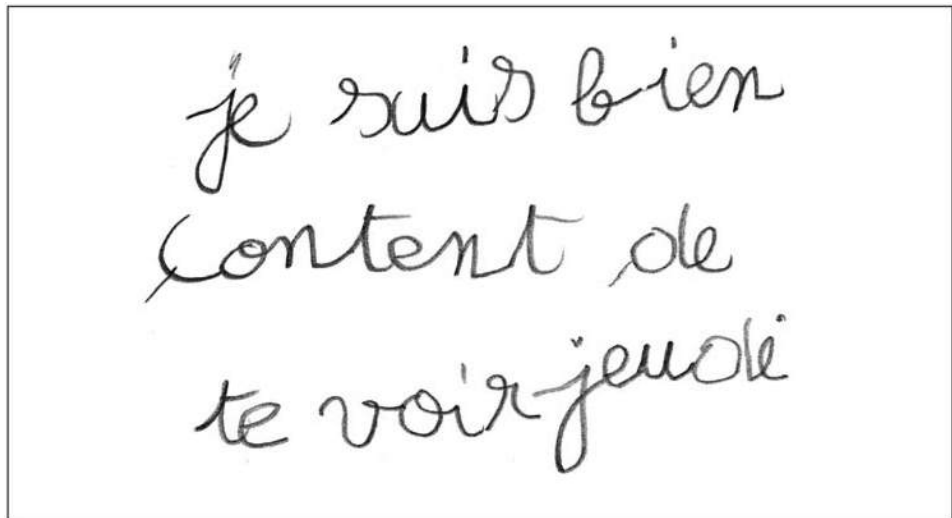 je suis bien
content de
te voir jeudi